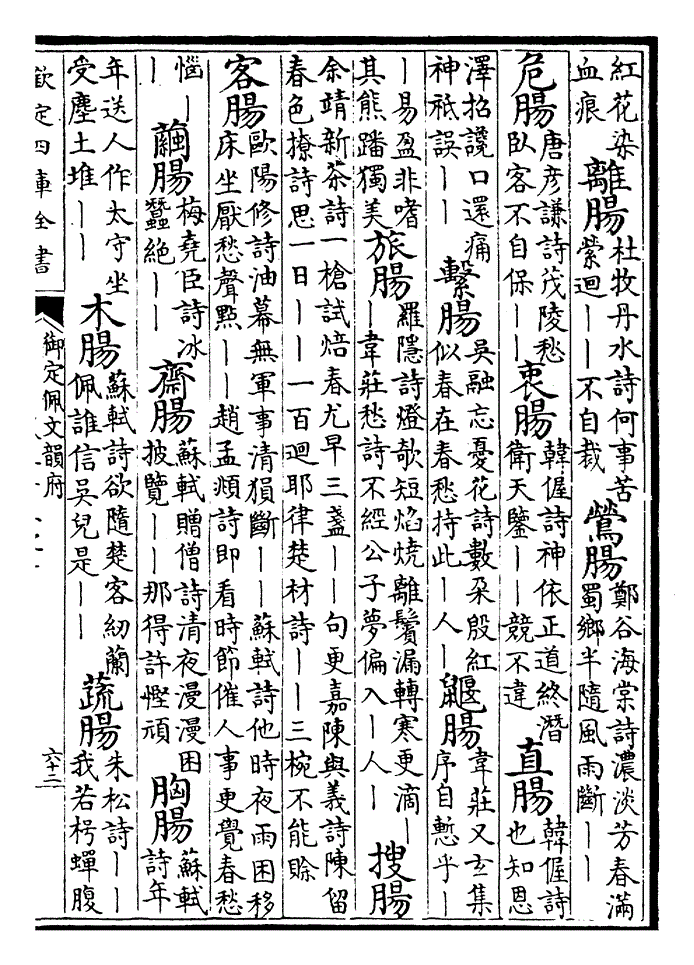 紅花染
血痕
離腸
杜牧丹水詩何事苦
縈迴——不自裁
鶯腸
鄭谷海棠詩濃淡芳春滿
蜀鄉半隨風雨斷——
危腸
唐彦謙詩茂陵愁
臥客不自保——
衷腸
韓偓詩神依正道終潛
衛天鑒——競不違
直腸
韓偓詩
也知恩
澤招讒口還痛
神祇誤——
繫腸
吳融忘憂花詩數朵殷紅
似春在春愁持此—人—
鼴腸
韋莊又玄集
序自慙乎—
—易盈非嗜
其熊蹯獨美
旅腸
羅隱詩燈欹短焰燒離鬢漏轉寒更滴—
—韋莊愁詩不經公子夢偏入—人—
搜腸
余靖新茶詩一槍試焙春尤早三盞——句更嘉陳與義詩陳留
春色撩詩思一日——一百迴耶律楚材詩——三椀不能賒
客腸
歐陽修詩油幕無軍事清猿斷——蘇軾詩他時夜雨困移
床坐厭愁聲點——趙孟頫詩即看時節催人事更覺春愁
惱—
—
繭腸
梅堯臣詩冰
蠶絶——
齋腸
蘇軾贈僧詩清夜漫漫困
披覽——那得許慳頑
胸腸
蘇軾
詩年
年送人作太守坐
受塵土堆——
木腸
蘇軾詩欲隨楚客紉蘭
佩誰信吳兒是——
蔬腸
朱松詩——
我若枵蟬腹
欽定四庫全書
御定佩文韻府
六十二